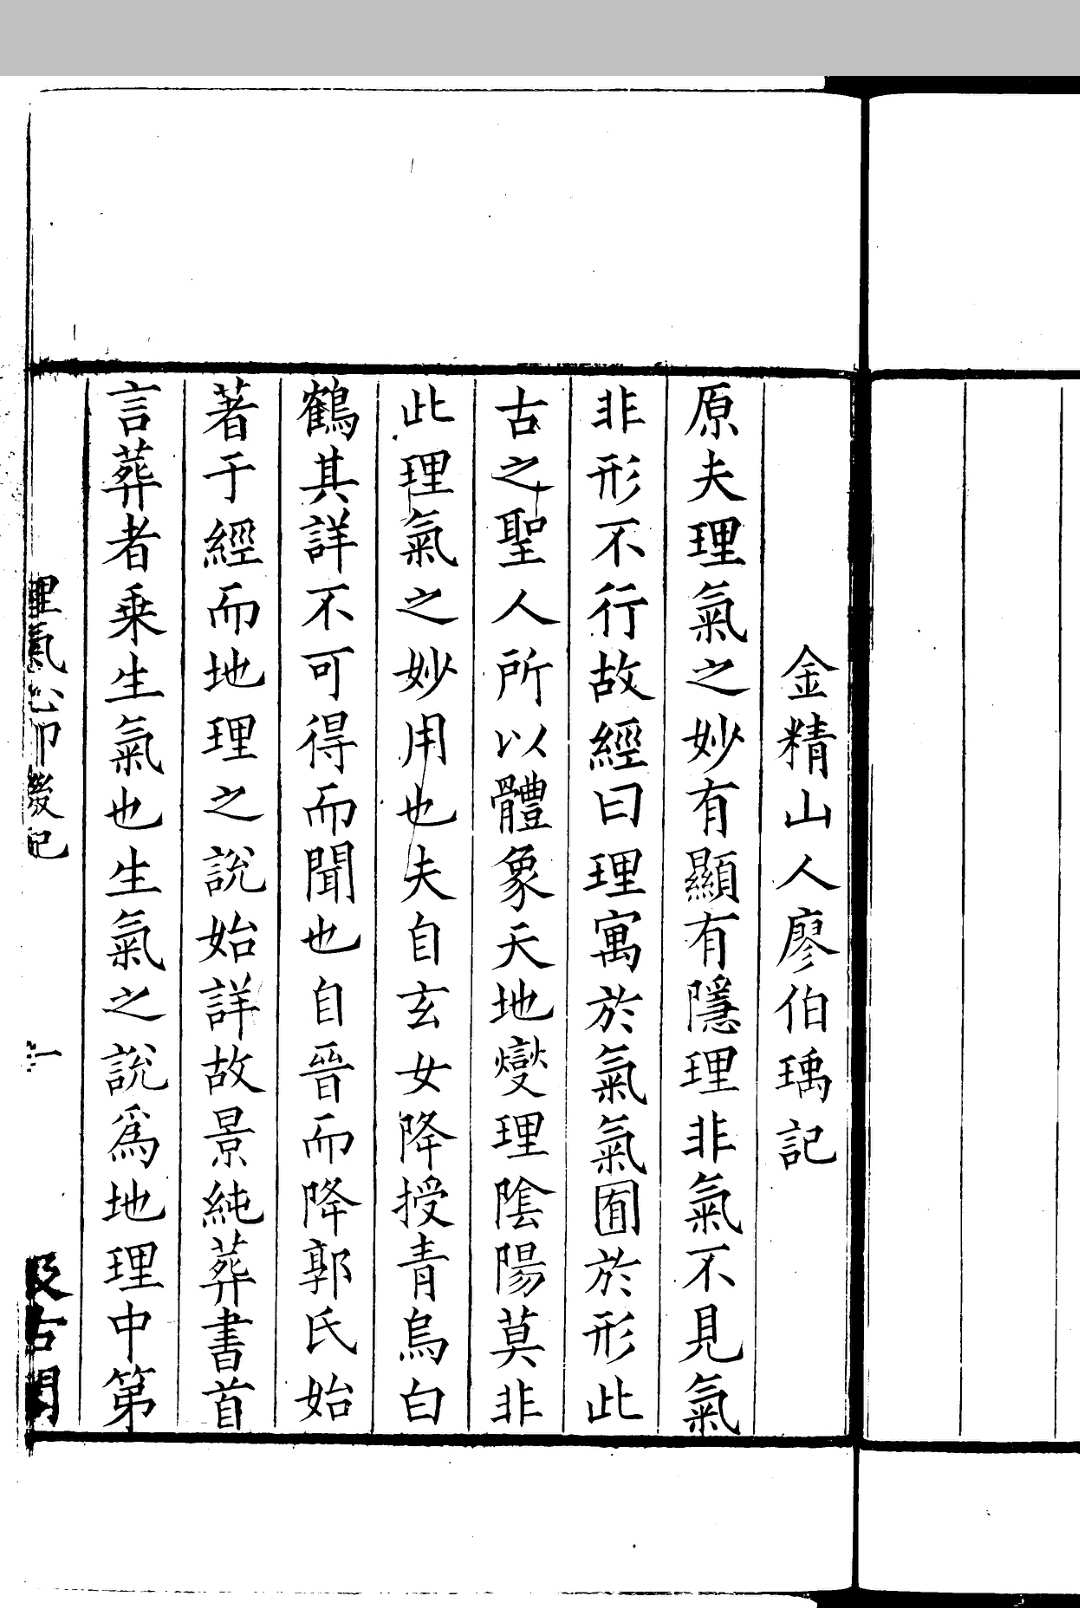 金精山人廖伯瑀記
原夫理氣之妙有顯有隱理非氣不見氣
非形不行故經曰理寓於氣氣囿於形此
古之聖人所以體象天地燮理陰陽莫非
此理氣之妙用也夫自玄女降授青烏白
鶴其詳不可得而聞也自晉而降郭氏始
著于經而地理之說始詳故景純葬書首
言葬者乗生氣也生氣之說爲地理中第
理氣心印後記
一
汲古閣